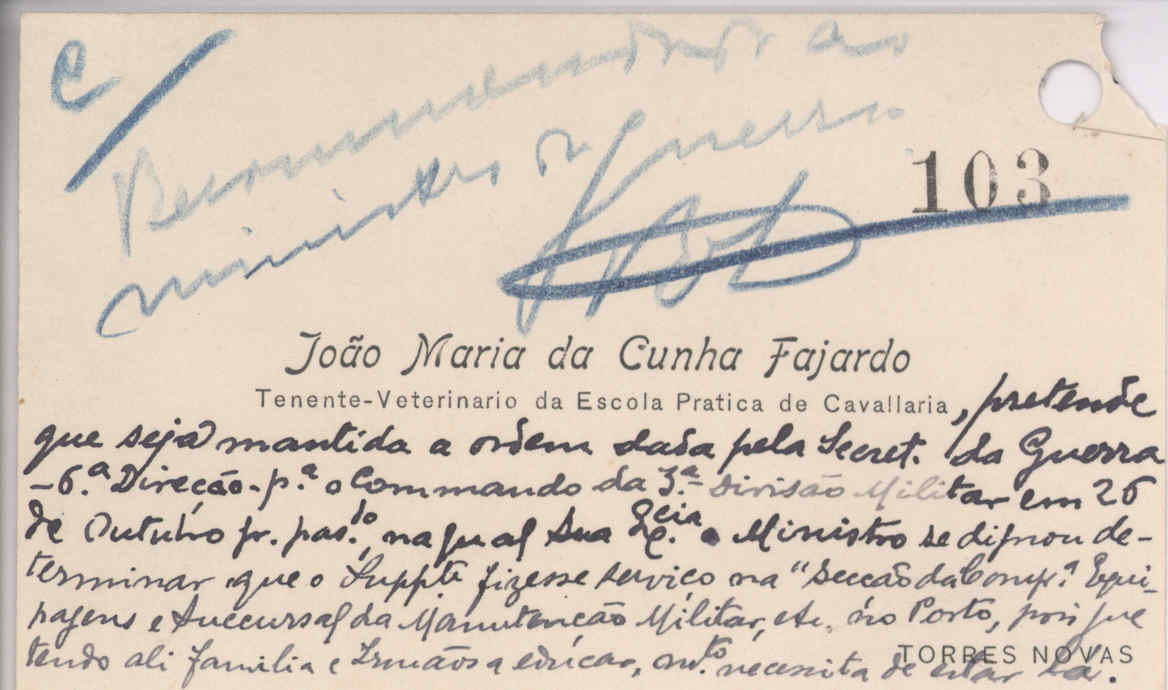 C/
Recommendado ao
ministro da Guerra
103
João Maria da Cunha Fajardo
Tenente-Veterinario da Escola Pratica de Cavallaria, pretende
que seja mantida a ordem dada pela Secret. da Guerra
-6.ª Direcção-p.ª o Commando da 3.ª Divisão Militar em 26
de Outubro pr. pas.do, na qual Sua Ex.cia o Ministro se dignou de-
terminar que o Suppte fizesse serviço na "Secção da Comp.ª Equi-
pagens e Succursal da Manutenção Militar, etc, no Porto, pois que
tendo ali familia e Irmãos a educar, m.to necessita de estar lá.
TORRES NOVAS